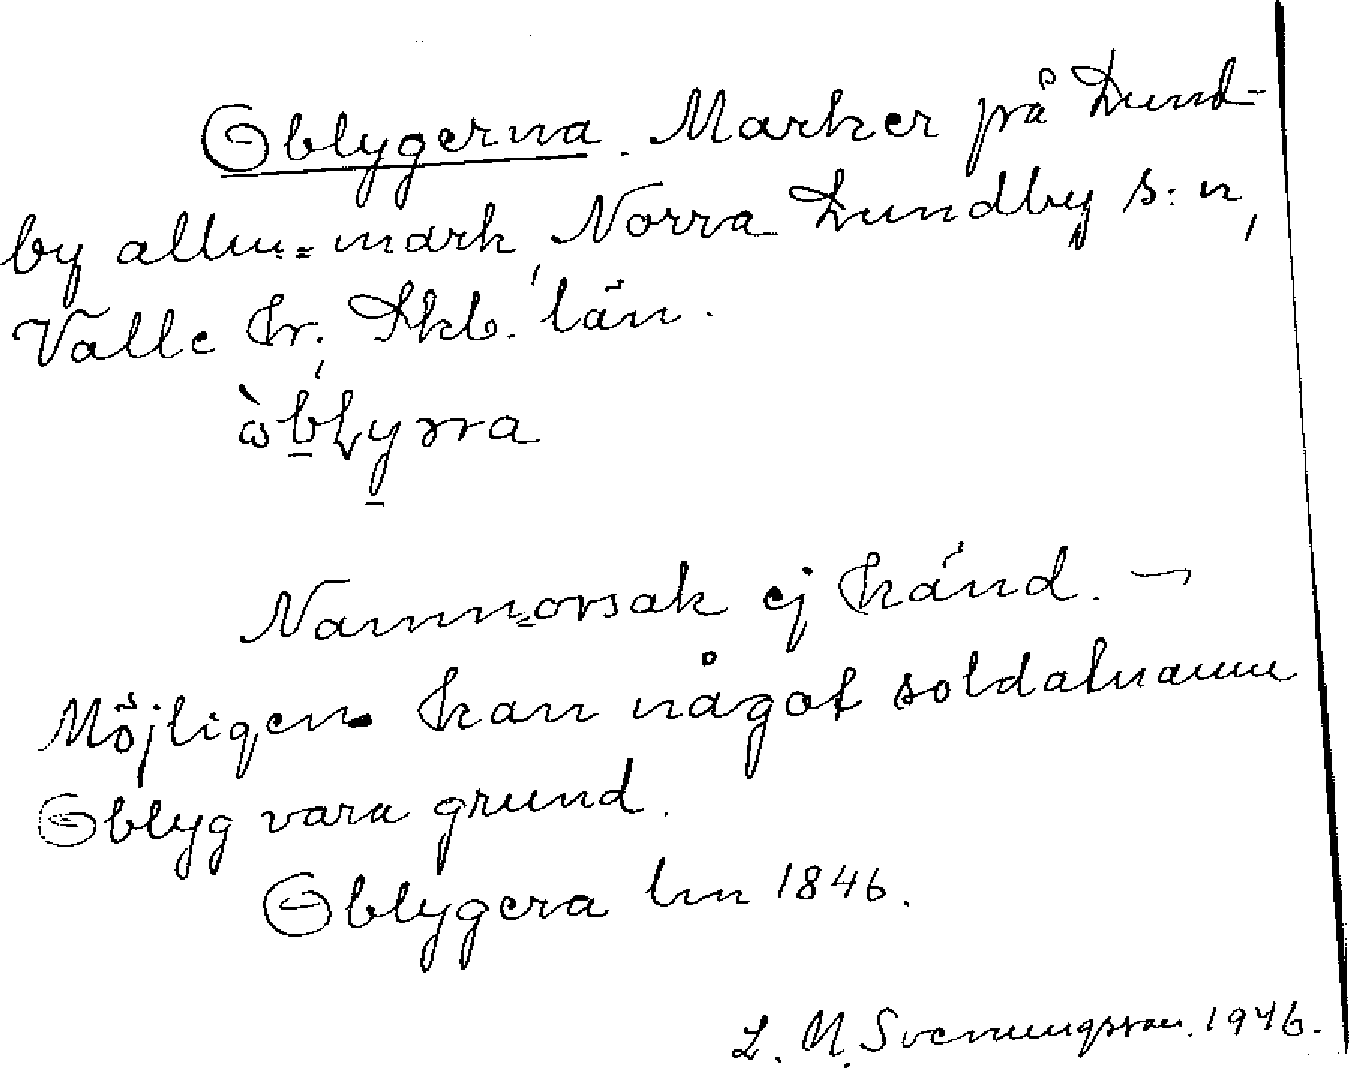 Oblygerna. Marker på Lund-
by allm.-mark, Norra Lundby s:n,
Valle hr, Skb. län.

Namn-orsak ej känd. –
Möjligen kan något soldatnamn
Oblyg vara grund.
Oblygera lm 1846.
L. M. Svenungsson. 1946.